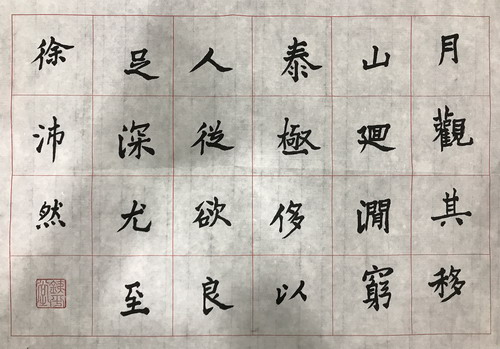 月觀其移
山廻澗窮
泰極侈以
人從欲良
足深尤至
徐沛然